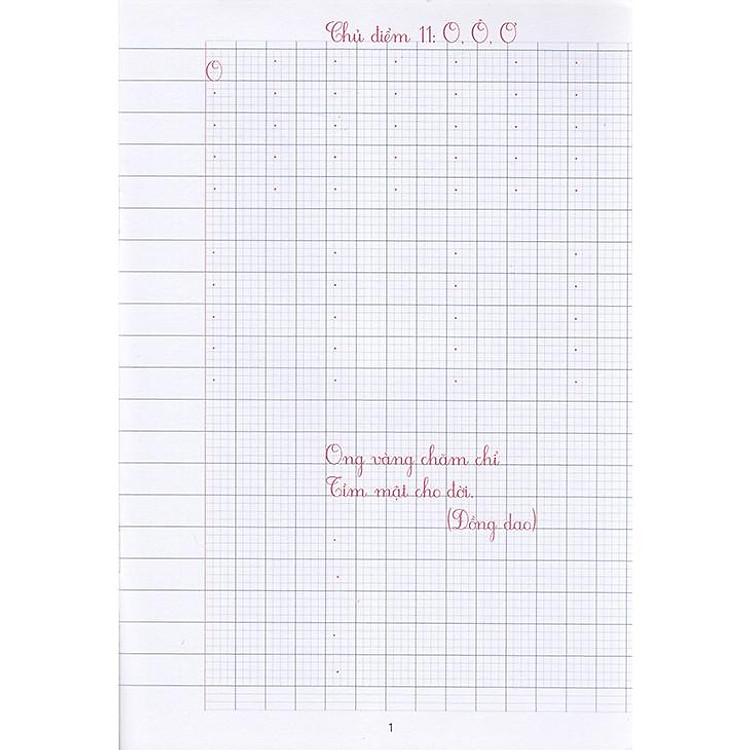 Chủ điểm 11: O, Ô, Ơ
O
Ong vàng chăm chỉ
Tìm mật cho đời.
(Đồng dao)
1